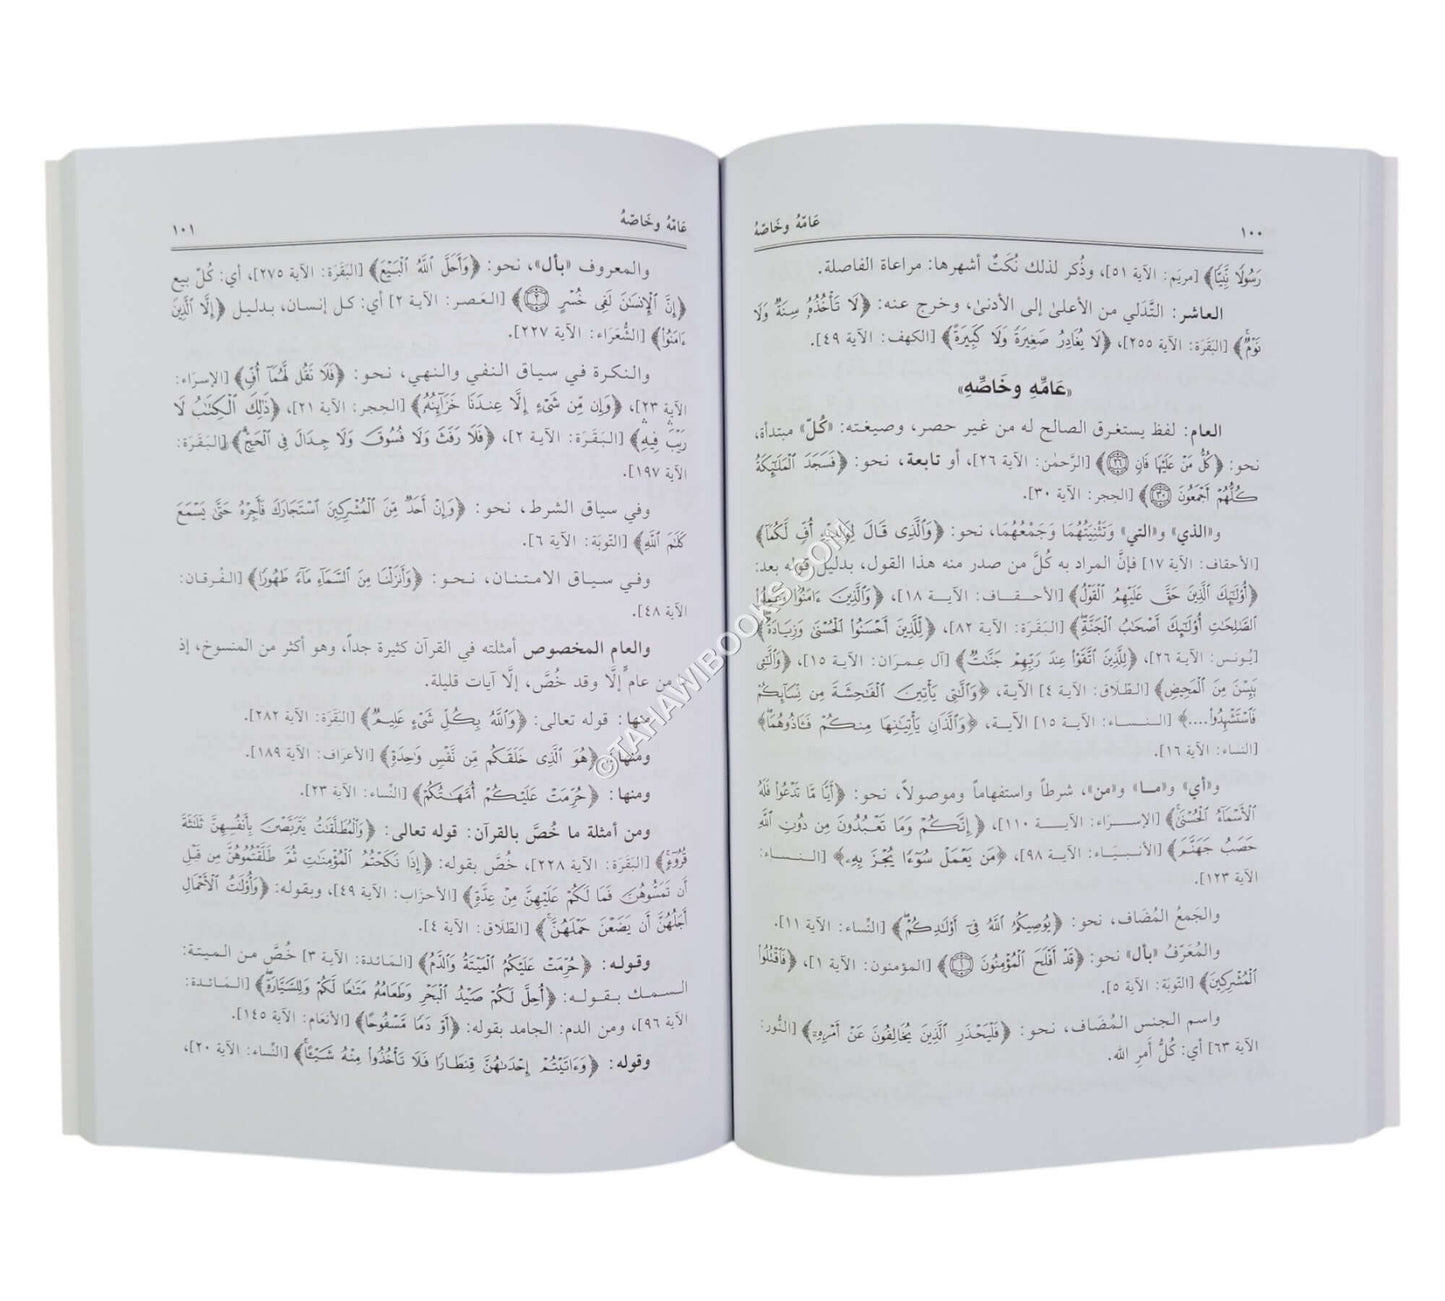 ١٠٠ عَامّهُ وخَاصّهُ
رَسُولًا نَّبِيًّا﴾ [مريَم: الآية ٥١]، وذُكر لذلك نُكَتٌ أشهرها: مراعاة الفاصلة.
العاشر: التَّدَلي من الأعلىٰ إلى الأدنىٰ، وخرج عنه: ﴿لَا تَأْخُذُهُۥ سِنَةٌ وَلَا
نَوْمٌ﴾ [البَقَرَة: الآية ٢٥٥]، ﴿لَا يُغَادِرُ صَغِيرَةً وَلَا كَبِيرَةً﴾ [الكهف: الآية ٤٩].
«عَامِّهِ وخَاصِّهِ»
العام: لفظ يستغرق الصالح له من غير حصر، وصيغته: «كُلّ» مبتدأة،
نحو: ﴿كُلُّ مَنْ عَلَيْهَا فَانٍ ٢٦﴾ [الرَّحمٰن: الآية ٢٦]، أو تابعة، نحو: ﴿فَسَجَدَ الْمَلَٰٓئِكَةُ
كُلُّهُمْ أَجْمَعُونَ ٣٠﴾ [الحِجر: الآية ٣٠].
و«الذي» و«التي» وَتَثْنِيَتُهُمَا وَجَمْعُهُمَا، نحو: ﴿وَٱلَّذِى قَالَ لِوَٰلِدَيْهِ أُفٍّ لَّكُمَآ﴾
[الأحقاف: الآية ١٧] فإنَّ المراد به كُلَّ من صدر منه هذا القول، بدليل قوله بعد:
﴿أُوْلَٰٓئِكَ ٱلَّذِينَ حَقَّ عَلَيْهِمُ ٱلْقَوْلُ﴾ [الأحقَاف: الآية ١٨]، ﴿وَٱلَّذِينَ ءَامَنُواْ وَعَمِلُواْ
ٱلصَّٰلِحَٰتِ أُوْلَٰٓئِكَ أَصْحَٰبُ ٱلْجَنَّةِ﴾ [البَقَرَة: الآية ٨٢]، ﴿لِلَّذِينَ أَحْسَنُواْ ٱلْحُسْنَىٰ وَزِيَادَةٌ﴾
[يُونس: الآية ٢٦]، ﴿لِلَّذِينَ ٱتَّقَوْاْ عِندَ رَبِّهِمْ جَنَّٰتٌ﴾ [آل عِمرَان: الآية ١٥]، ﴿وَٱلَّٰٓـِٔى
يَئِسْنَ مِنَ ٱلْمَحِيضِ﴾ [الطّلَاق: الآية ٤] الآية، ﴿وَٱلَّٰتِى يَأْتِينَ ٱلْفَٰحِشَةَ مِن نِّسَآئِكُمْ
فَٱسْتَشْهِدُواْ....﴾ [النساء: الآية ١٥] الآية، ﴿وَٱلَّذَانِ يَأْتِيَٰنِهَا مِنكُمْ فَـَٔاذُوهُمَا﴾
[النساء: الآية ١٦].
و«أي» و«مـا» و«من»، شرطاً واستفهاماً وموصولاً، نحو: ﴿أَيًّا مَّا تَدْعُواْ فَلَهُ
ٱلْأَسْمَآءُ ٱلْحُسْنَىٰ﴾ [الإسرَاء: الآية ١١٠]، ﴿إِنَّكُمْ وَمَا تَعْبُدُونَ مِن دُونِ ٱللَّهِ
حَصَبُ جَهَنَّمَ﴾ [الأنبيَاء: الآية ٩٨]، ﴿مَن يَعْمَلْ سُوٓءًا يُجْزَ بِهِۦ﴾ [النساء:
الآية ١٢٣].
والجَمعُ المُضَاف، نحو: ﴿يُوصِيكُمُ ٱللَّهُ فِىٓ أَوْلَٰدِكُمْ﴾ [النِّساء: الآية ١١].
والمُعَرّف «بأل» نحو: ﴿قَدْ أَفْلَحَ ٱلْمُؤْمِنُونَ ١﴾ [المؤمنون: الآية ١]، ﴿فَٱقْتُلُواْ
ٱلْمُشْرِكِينَ﴾ [التّوبَة: الآية ٥].
واسم الجنس المُضَاف، نحو: ﴿فَلْيَحْذَرِ ٱلَّذِينَ يُخَالِفُونَ عَنْ أَمْرِهِۦٓ﴾ [النُّور:
الآية ٦٣] أي: كُلُّ أَمرِ الله.
عَامّهُ وخَاصّهُ ١٠١
والمعروف «بأل»، نحو: ﴿وَأَحَلَّ ٱللَّهُ ٱلْبَيْعَ﴾ [البَقَرَة: الآية ٢٧٥]، أي: كُلّ بيع
﴿إِنَّ ٱلْإِنسَٰنَ لَفِى خُسْرٍ ٢﴾ [العَصر: الآية ٢] أي: كل إنسان، بدليل ﴿إِلَّا ٱلَّذِينَ
ءَامَنُواْ﴾ [الشُّعَرَاء: الآية ٢٢٧].
والنكرة في سياق النفي والنهي، نحو: ﴿فَلَا تَقُل لَّهُمَآ أُفٍّ﴾ [الإسرَاء:
الآية ٢٣]، ﴿وَإِن مِّن شَىْءٍ إِلَّا عِندَنَا خَزَآئِنُهُۥ﴾ [الحِجر: الآية ٢١]، ﴿ذَٰلِكَ ٱلْكِتَٰبُ لَا
رَيْبَ فِيهِ﴾ [البَقَرَة: الآية ٢]، ﴿فَلَا رَفَثَ وَلَا فُسُوقَ وَلَا جِدَالَ فِى ٱلْحَجِّ﴾ [البَقَرَة:
الآية ١٩٧].
وفي سياق الشرط، نحو: ﴿وَإِنْ أَحَدٌ مِّنَ ٱلْمُشْرِكِينَ ٱسْتَجَارَكَ فَأَجِرْهُ حَتَّىٰ يَسْمَعَ
كَلَٰمَ ٱللَّهِ﴾ [التّوبَة: الآية ٦].
وفي سياق الامتنان، نحو: ﴿وَأَنزَلْنَا مِنَ ٱلسَّمَآءِ مَآءً طَهُورًا﴾ [الفُرقان:
الآية ٤٨].
والعام المخصوص أمثلته في القرآن كثيرة جداً، وهو أكثر من المنسوخ، إذ
من عام إلَّا وقد خُصَّ، إلَّا آيات قليلة.
منها: قوله تعالى: ﴿وَٱللَّهُ بِكُلِّ شَىْءٍ عَلِيمٌ﴾ [البَقَرَة: الآية ٢٨٢].
ومنها: ﴿هُوَ ٱلَّذِى خَلَقَكُم مِّن نَّفْسٍ وَٰحِدَةٍ﴾ [الأعرَاف: الآية ١٨٩].
ومنها: ﴿حُرِّمَتْ عَلَيْكُمْ أُمَّهَٰتُكُمْ﴾ [النِّساء: الآية ٢٣].
ومن أمثلة ما خُصَّ بالقرآن: قوله تعالى: ﴿وَٱلْمُطَلَّقَٰتُ يَتَرَبَّصْنَ بِأَنفُسِهِنَّ ثَلَٰثَةَ
قُرُوٓءٍ﴾ [البَقَرَة: الآية ٢٢٨]، خُصَّ بقوله: ﴿إِذَا نَكَحْتُمُ ٱلْمُؤْمِنَٰتِ ثُمَّ طَلَّقْتُمُوهُنَّ مِن قَبْلِ
أَن تَمَسُّوهُنَّ فَمَا لَكُمْ عَلَيْهِنَّ مِنْ عِدَّةٍ﴾ [الأحزَاب: الآية ٤٩]، وبقوله: ﴿وَأُوْلَٰتُ ٱلْأَحْمَالِ
أَجَلُهُنَّ أَن يَضَعْنَ حَمْلَهُنَّ﴾ [الطّلَاق: الآية ٤].
وقوله: ﴿حُرِّمَتْ عَلَيْكُمُ ٱلْمَيْتَةُ وَٱلدَّمُ﴾ [المَائدة: الآية ٣] خُصَّ من الميتة:
السمك بقوله: ﴿أُحِلَّ لَكُمْ صَيْدُ ٱلْبَحْرِ وَطَعَامُهُۥ مَتَٰعًا لَّكُمْ وَلِلسَّيَّارَةِ﴾ [المَائدة:
الآية ٩٦]، ومن الدم: الجامد بقوله: ﴿أَوْ دَمًا مَّسْفُوحًا﴾ [الأنعَام: الآية ١٤٥].
وقوله: ﴿وَءَاتَيْتُمْ إِحْدَىٰهُنَّ قِنطَارًا فَلَا تَأْخُذُواْ مِنْهُ شَيْـًٔا﴾ [النِّساء: الآية ٢٠]،
©TAHAWIBOOKS.COM